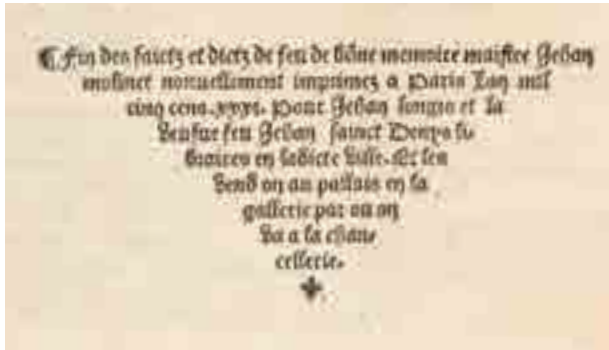 ¶ Fin des faictz et dictz de feu de bõne memoire maistre Jehan
molinet nouuellement imprimez a Paris Lan mil
cinq cens.xxxi. Pour Jehan longis et la
Veufue feu Jehan sainct Denys li
braires en ladicte Ville. Et les
Vend on au pallais en la
gallerie par ou on
Va a la chan
cellerie.